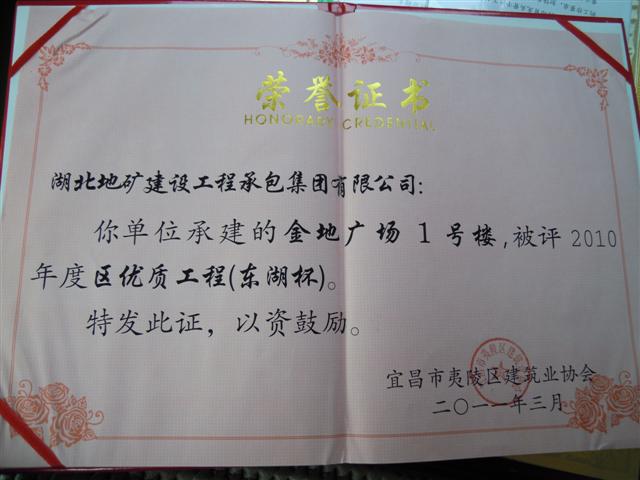 荣誉证书
HONORARY CREDENTIAL
湖北地矿建设工程承包集团有限公司:
你单位承建的金地广场1号楼,被评2010
年度区优质工程(东湖杯)。
特发此证，以资鼓励。
宜昌市夷陵区建筑业协会
二〇一一年三月